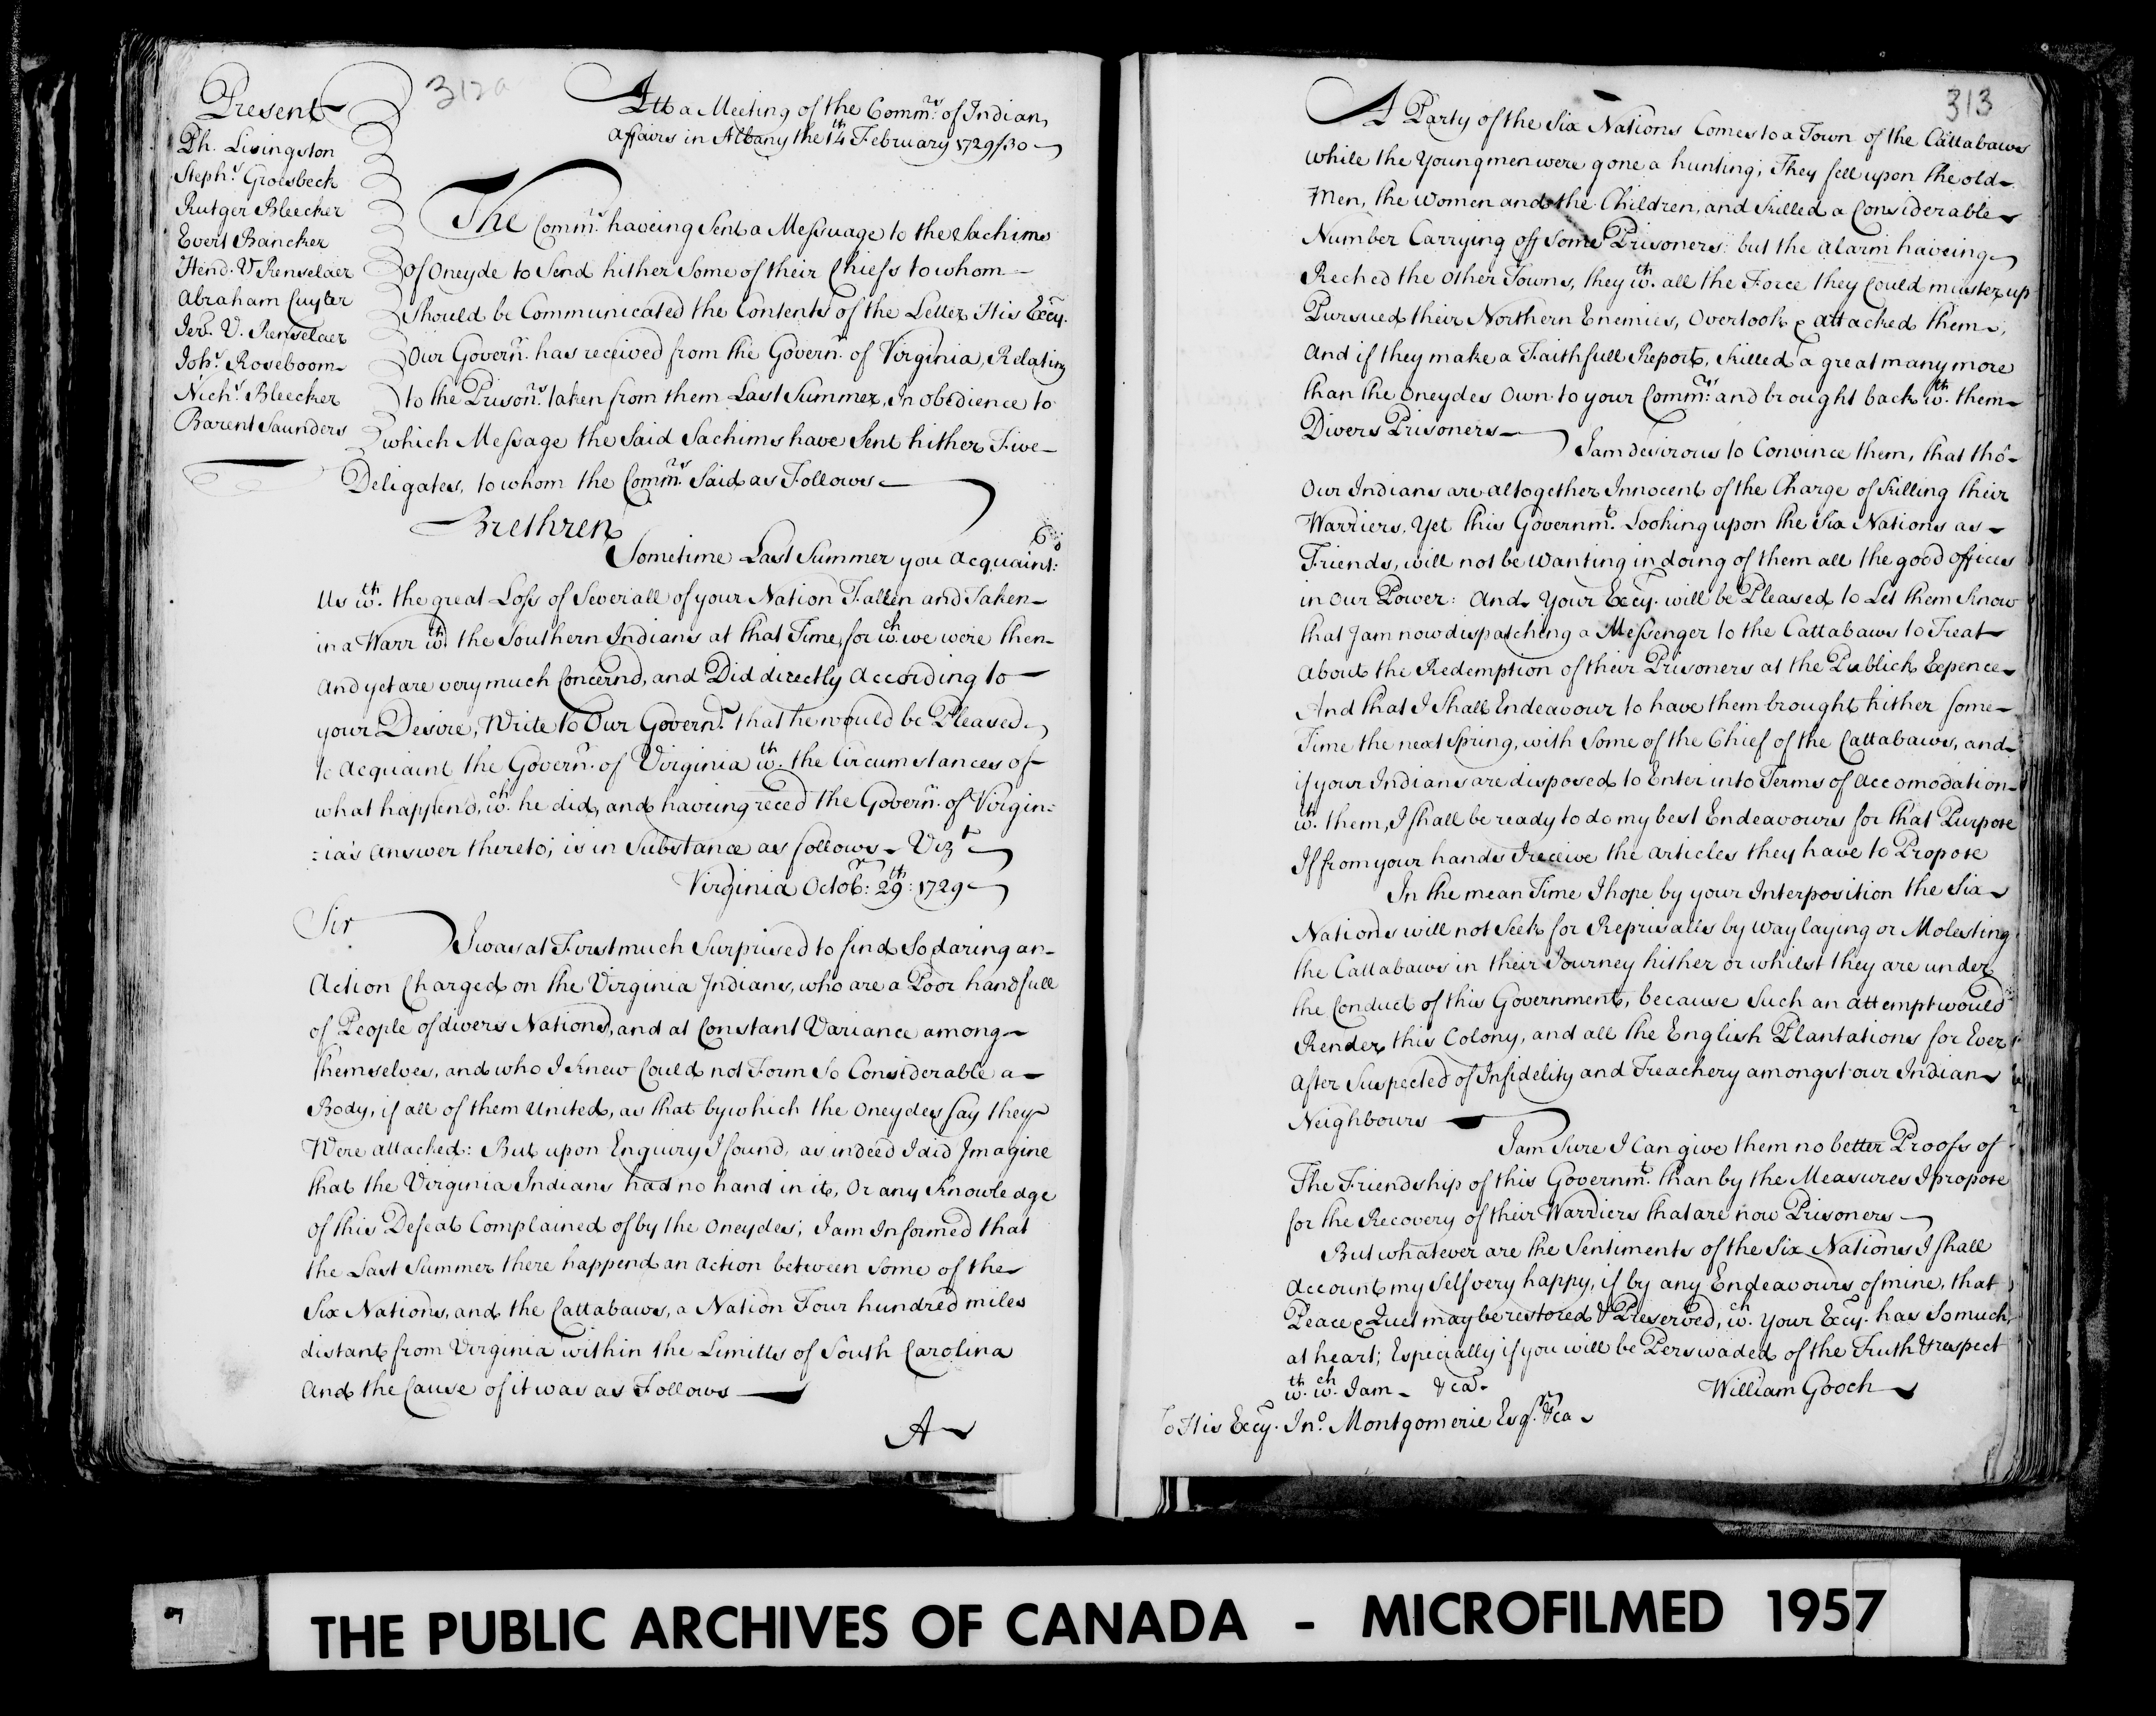 312a
Present
Ph. Livingston
Steph:s Groesbeck
Rutger Bleecker
Evert Bancker
Hend. V Renselaer
Abraham Cuyler
Jer: V. Renselaer
Joh:s Roseboom
Nich:s Bleecker
Barent Saunders
Att a Meeting of the Comm:rs of Indian
affairs in Albany the 14th February 1729/30
The Comm:rs haveing Sent a Message to the Sachims
of Oneyde to Send hither Some of their Chiefs to whom
Should be Communicated the Contents of the Letter His Excy.
Our Govern:r has received from the Govern:r of Virginia, Relating
to the Prison:rs taken from them Last Summer, In obedience to
which Message the Said Sachims have Sent hither Five
Deligates, to whom the Comm:rs Said as Follows
Brethren
Sometime Last Summer you Acquaint:
Us wth. the great Loss of Severall of your Nation Fallen and Taken
in a Warr wth. the Southern Indians at that Time, for wch. we were then
and yet are very much Concernd, and Did directly According to
your Desire, Write to Our Govern:r that he would be Pleased
to Acquaint the Govern:r of Virginia wth. the Circumstances of
what happend, wch. he did, and haveing reced the Govern:r of Virgin:
:ia's Answer thereto; is in Substance as follows Vizt
Virginia Octob:r 29th: 1729
Sir
I was at First much Surprised to find So daring an
Action Charged on the Virginia Indians, who are a Poor handfull
of People of divers Nations, and at Constant Variance among
themselves, and who I knew Could not Form So Considerable a
Body, if all of them United, as that by which the Oneydes say they
Were attached: But upon Enquiry I found, as indeed I did Imagine
that the Virginia Indians had no hand in it, Or any Knowledge
of this Defeat Complained of by the Oneydes; I am Informed that
the Last Summer there happend an Action between Some of the
Six Nations, and the Cattabaws, a Nation Four hundred miles
distant from Virginia within the Limitts of South Carolina
And the Cause of it was as Follows
A
313
A Party of the Six Nations Comes to a Town of the Cattabaws
while the Young men were gone a hunting; They fell upon the old
Men, the Women and the Children, and Killed a Considerable
Number Carrying off Some Prisoners: but the Alarm haveing
Reched the Other Towns, they wth. all the Force they Could muster up
Pursued their Northern Enemies, Overtook & attacked them,
And if they make a Faithfull Report, Killed a great many more
than the Oneydes Own to your Comm:rs and brought back wth. them
Divers Prisoners
I am desirous to Convince them, that tho'
Our Indians are altogether Innocent of the Charge of Killing their
Warriers, Yet this Governmt. Looking upon the Six Nations as
Friends, will not be Wanting in doing of them all the good offices
in Our Power: And Your Excy. will be Pleased to Let them Know
that I am now dispatching a Messenger to the Cattabaws to Treat
about the Redemption of their Prisoners at the Publick Expence
And that I Shall Endeavour to have them brought hither some
Time the next Spring, with Some of the Chief of the Cattabaws, and
if your Indians are disposed to Enter into Terms of Accomodation
wth. them, I shall be ready to do my best Endeavours for that Purpose
If from your hands I receive the articles they have to Propose
In the mean Time I hope by your Interposition the Six
Nations will not Seek for Reprisalls by way laying or Molesting
the Cattabaws in their Journey hither or whilst they are under
the Conduct of this Government, because Such an attempt would
Render this Colony, and all the English Plantations for Ever
After Suspected of Infidelity and Treachery amongst our Indian
Neighbours
I am Sure I Can give them no better Proofs of
The Friendship of this Governmt. than by the Measures I propose
for the Recovery of their Warriers that are now Prisoners
But whatever are the Sentiments of the Six Nations I Shall
Account my Self very happy, if by any Endeavours of mine, that
Peace & Quet may be restored & Preserved, wch. your Excy. has So much
at heart; Especially if you will be Perswaded of the Truth & respect
wth. wch. I am &ca.
William Gooch
To His Excy. Jno. Montgomerie Esqr. &ca
THE PUBLIC ARCHIVES OF CANADA - MICROFILMED 1957